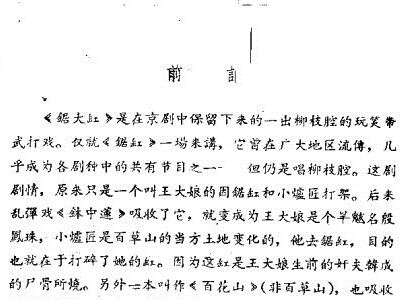 前 言
《鋸大缸》是在京剧中保留下来的一出柳枝腔的玩笑带
武打戏。仅就《鋸缸》一場来講，它曾在广大地区流傳，几
乎成为各剧种中的共有节目之一 但仍是唱柳枝腔。这剧
剧情，原来只是一个叫王大娘的因鋸缸和小爐匠打架。后来
乱彈戏《鉢中蓮》吸收了它，就变成为王大娘是个羊魃名殷
鳳珠，小爐匠是百草山的当方土地变化的，他去鋸缸，目的
也就在于打碎了她的缸。因为这缸是王大娘生前的奸夫韓成
的尸骨所燒。另外一本叫作《百花山》(非百草山)，也吸收